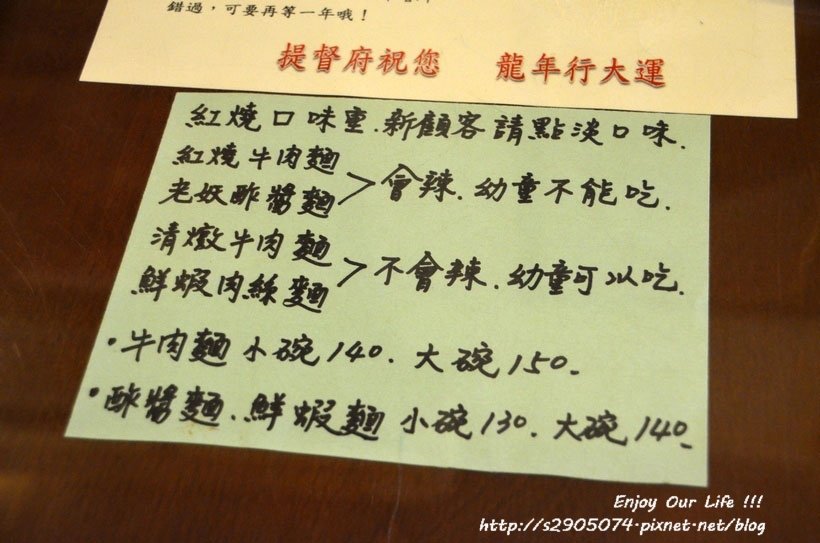 錯過，可要再等一年哦！
提督府祝您 龍年行大運
紅燒口味重.新顧客請點淡口味.
紅燒牛肉麵
老妖酢醬麵 > 會辣.幼童不能吃.
清燉牛肉麵
鮮蝦肉絲麵 > 不會辣.幼童可以吃.
·牛肉麵 小碗140. 大碗150.
·酢醬麵.鮮蝦麵 小碗130. 大碗140.
Enjoy Our Life !!!
http://s2905074.pixnet.net/blog